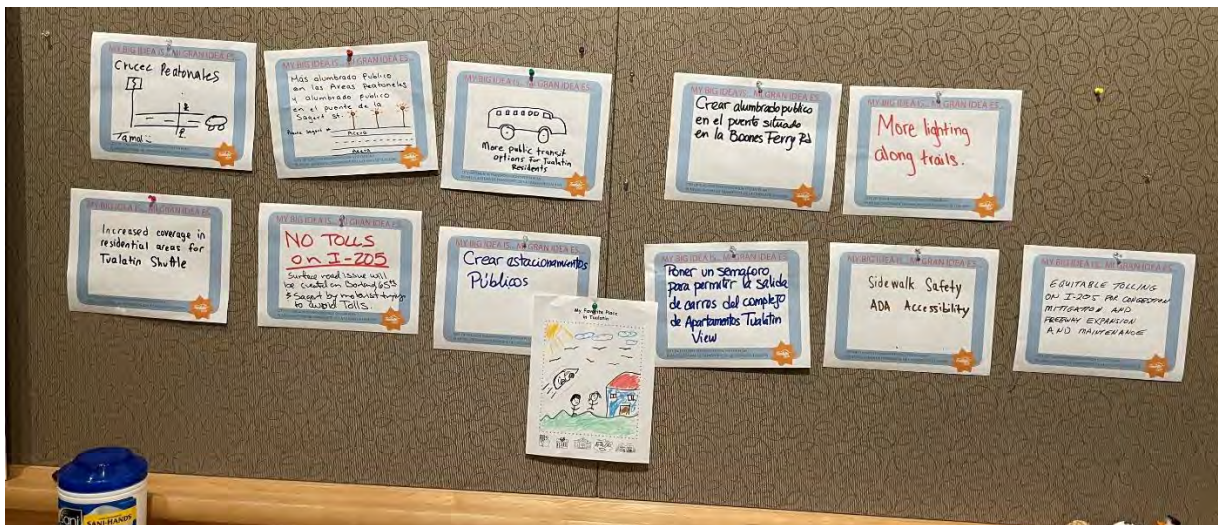 MY BIG IDEA IS... MI GRAN IDEA ES...
Crucec Peatonales
MY BIG IDEA IS... MI GRAN IDEA ES...
Más alumbrado Publico
en las Areas Peatonales
y alumbrado Publico
en el puente de la
Sagert St.
Acera
Acera
MY BIG IDEA IS... MI GRAN IDEA ES...
More public transit
options For Tualatin
Residents
MY BIG IDEA IS... MI GRAN IDEA ES...
Crear alumbrado publico
en el puente situado
en la Boones Ferry Rd
MY BIG IDEA IS... MI GRAN IDEA ES...
More lighting
along trails.
MY BIG IDEA IS... MI GRAN IDEA ES...
Increased coverage in
residential areas for
Tualatin Shuttle
MY BIG IDEA IS... MI GRAN IDEA ES...
NO TOLLS
on I-205
Surface road issue will
be created on Borland 65th
& Sagert by motorist trying
to avoid Tolls.
MY BIG IDEA IS... MI GRAN IDEA ES...
Crear estacionamientos
Públicos
MY BIG IDEA IS... MI GRAN IDEA ES...
Poner un semaforo
para permitir la salida
de carros del complejo
de Apartamentos Tualatin
View
MY BIG IDEA IS... MI GRAN IDEA ES...
Sidewalk Safety
ADA Accessibility
MY BIG IDEA IS... MI GRAN IDEA ES...
EQUITABLE TOLLING
ON I-205 FOR CONGESTION
MITIGATION AND
FREEWAY EXPANSION
AND MAINTENANCE
My Favorite Place
in Tualatin
SANI-HANDS